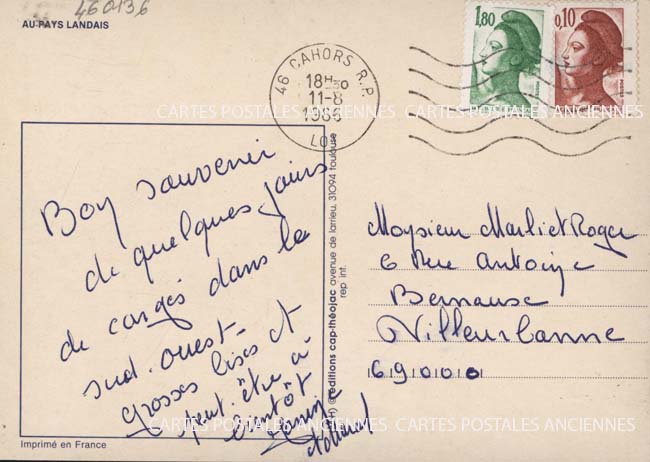 460136
AU PAYS LANDAIS
46 CAHORS R.P.
18H30
11-8
LOT
1,80
0,10
CARTES POSTALES ANCIENNES CARTES POSTALES ANCIENNES
Bon souvenir
de quelques jours
de congés dans le
sud-ouest-
grosses bises et
peut-être à
bientôt
éditions cap-théojac avenue de larrieu, 31094 toulouse
rep int.
Monsieur Marliet Roger
6 Rue Antoine
Bernause
Villeurbanne
69000
CARTES POSTALES ANCIENNES CARTES POSTALES ANCIENNES
Imprimé en France